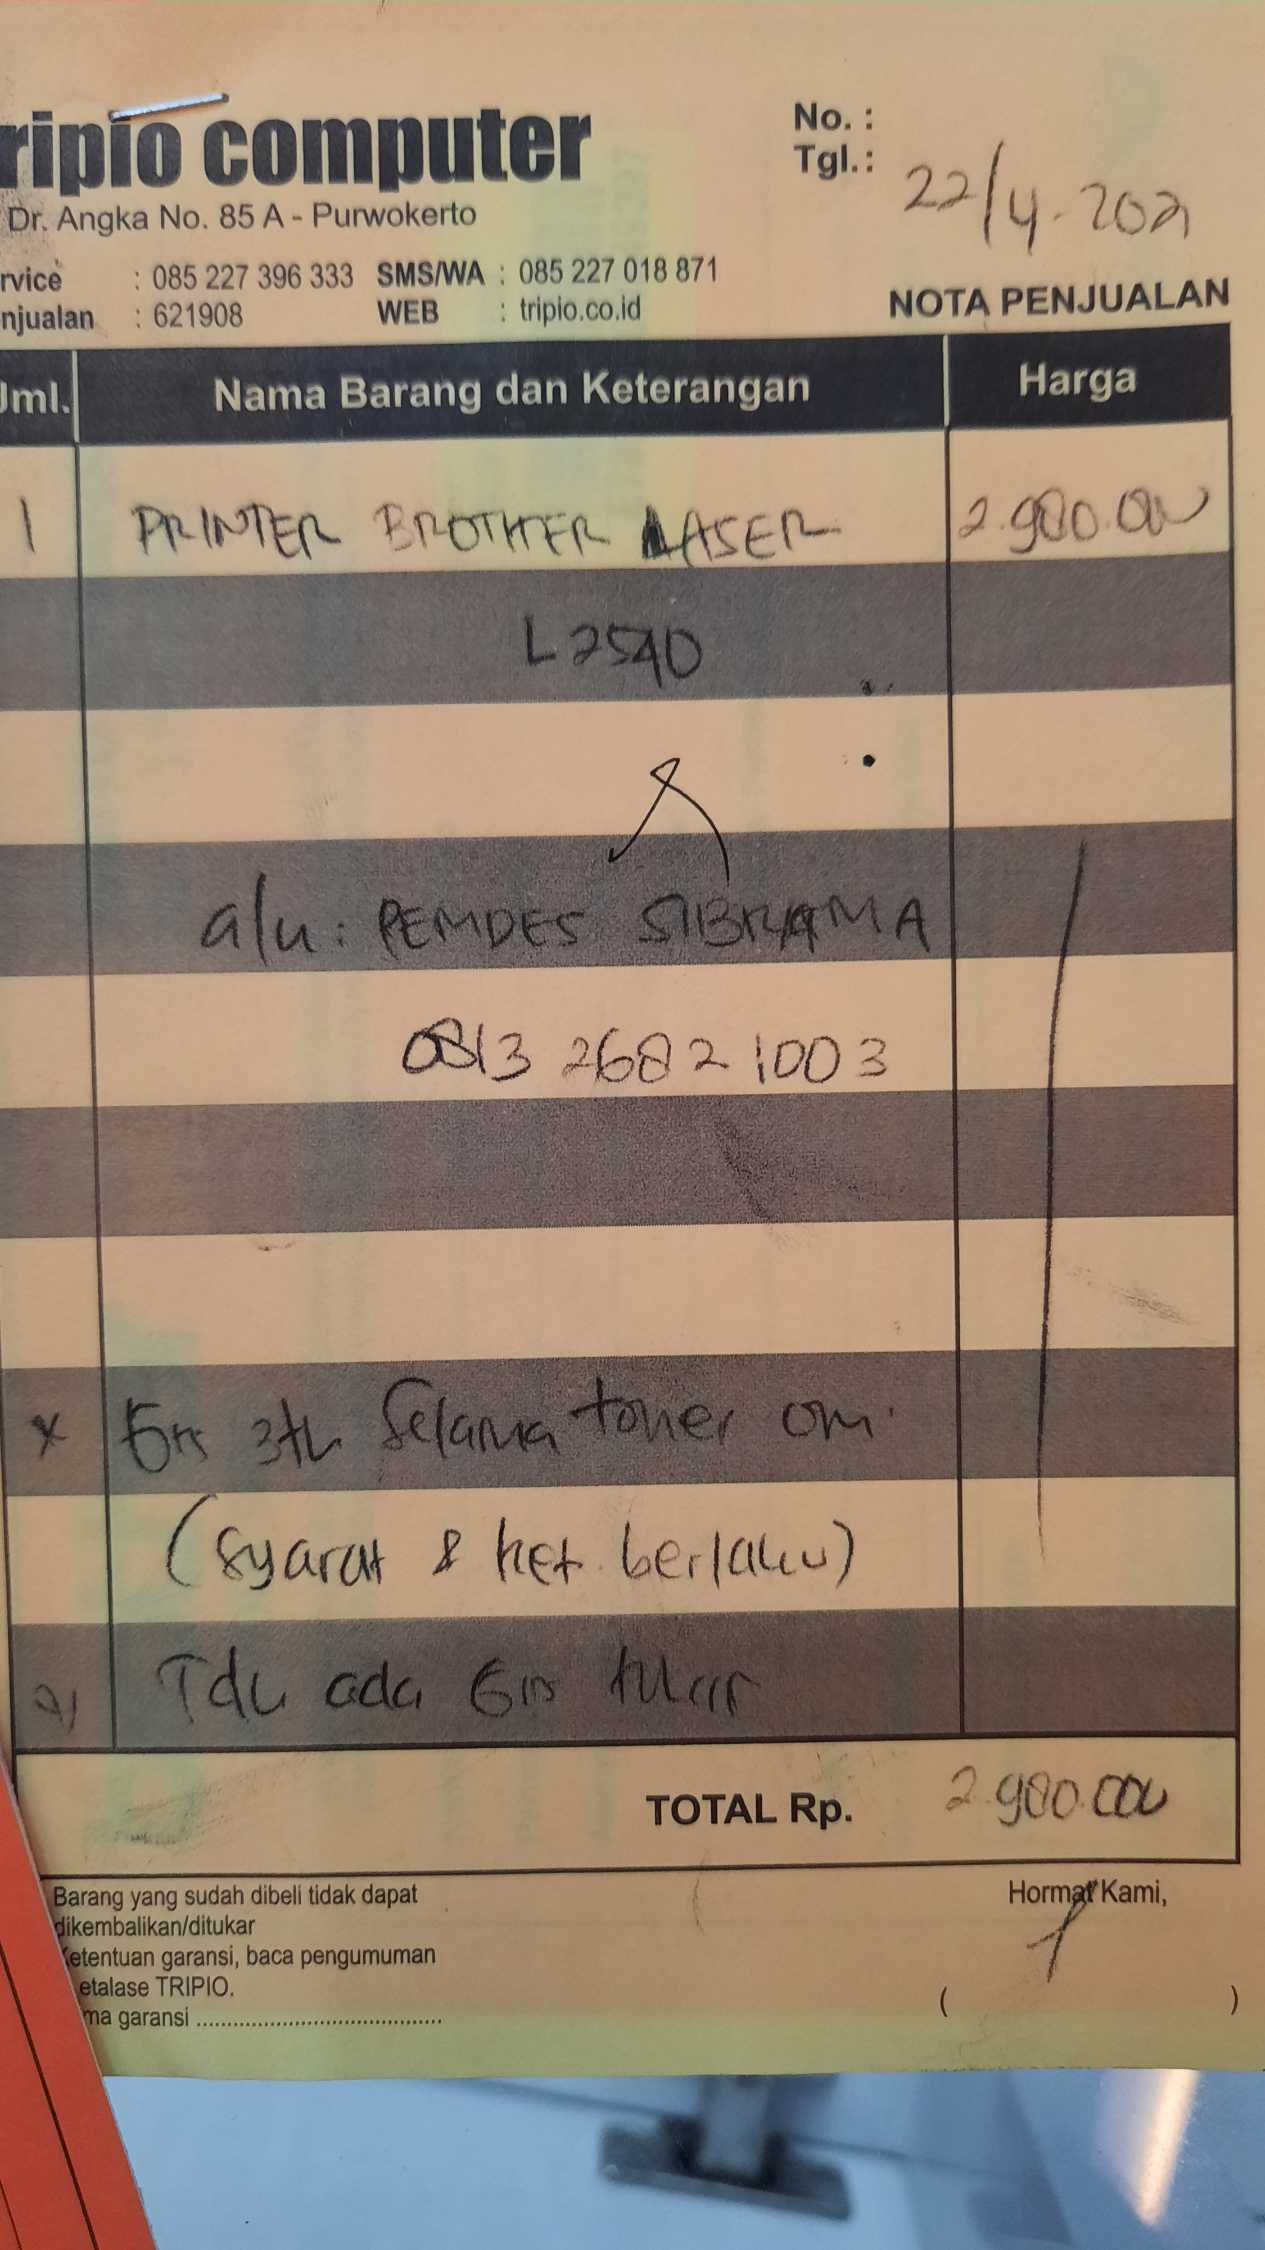 ripio computer
Dr. Angka No. 85 A - Purwokerto
rvice : 085 227 396 333 SMS/WA : 085 227 018 871
njualan : 621908 WEB : tripio.co.id
No. :
Tgl. : 22/4-2021
NOTA PENJUALAN
Jml. Nama Barang dan Keterangan Harga
1 PRINTER BROTHER LASER 2.980.000
L2540
a/n : PEMDES SIBRAMA
0813 2682 1003
* Grs 3th Selama toner ori
(Syarat & ket. berlaku)
Tdk ada Grs tukar
TOTAL Rp. 2.980.000
Barang yang sudah dibeli tidak dapat
dikembalikan/ditukar
Ketentuan garansi, baca pengumuman
etalase TRIPIO.
ma garansi ........................................
Hormat Kami,
( )